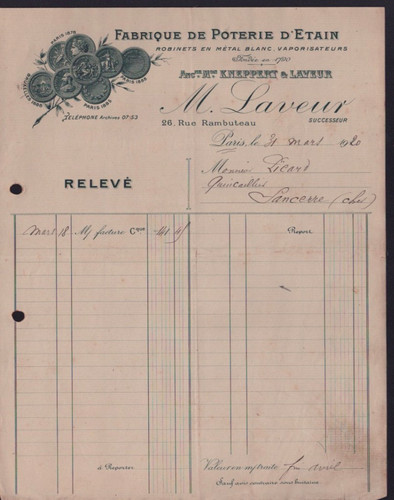 FABRIQUE DE POTERIE D'ETAIN
ROBINETS EN MÉTAL BLANC, VAPORISATEURS
Fondée en 1790
ANCne Mon KNEPPERT & LAVEUR
M. Laveur
SUCCESSEUR
26, Rue Rambuteau
PARIS 1878
PARIS 1885
TÉLÉPHONE Archives 07-53
Paris, le 31 mars 1920
Monsieur Picard
Quincaillier
Sancerre (Cher)
RELEVÉ
Mars 18 M/ facture Cque 41 45
Report
à Reporter
Valeur en m/ traite fin avril
Sauf avis contraire sous huitaine